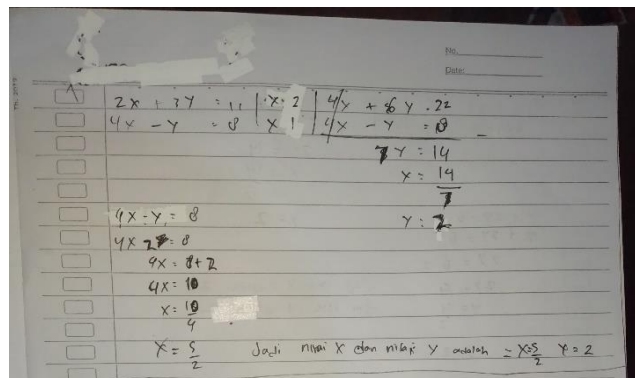 No.
Date:
2x + 3y = 11 | x 2 | 4x + 6y = 22
4x - y = 8 | x 1 | 4x - y = 8 -
7y = 14
x = 14/7
y = 2
4x - y = 8
4x 2 = 8
4x = 8 + 2
4x = 10
x = 10/4
x = 5/2 Jadi nilai x dan nilai y adalah = x = 5/2 y = 2